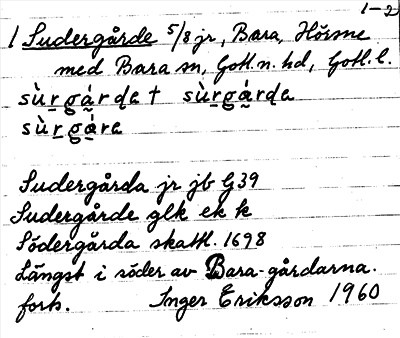 1-2
1 Sudergårde 5/8 jr, Bara, Hörsne
med Bara sn, Gotl. n. hd, Gotl. l.
sùrgárde † sùrgárda
sùrgáre
Sudergårda jr jb G39
Sudergårde glk ek k
Södergårda skattl. 1698
Längst i söder av Bara-gårdarna.
forts. Inger Eriksson 1960